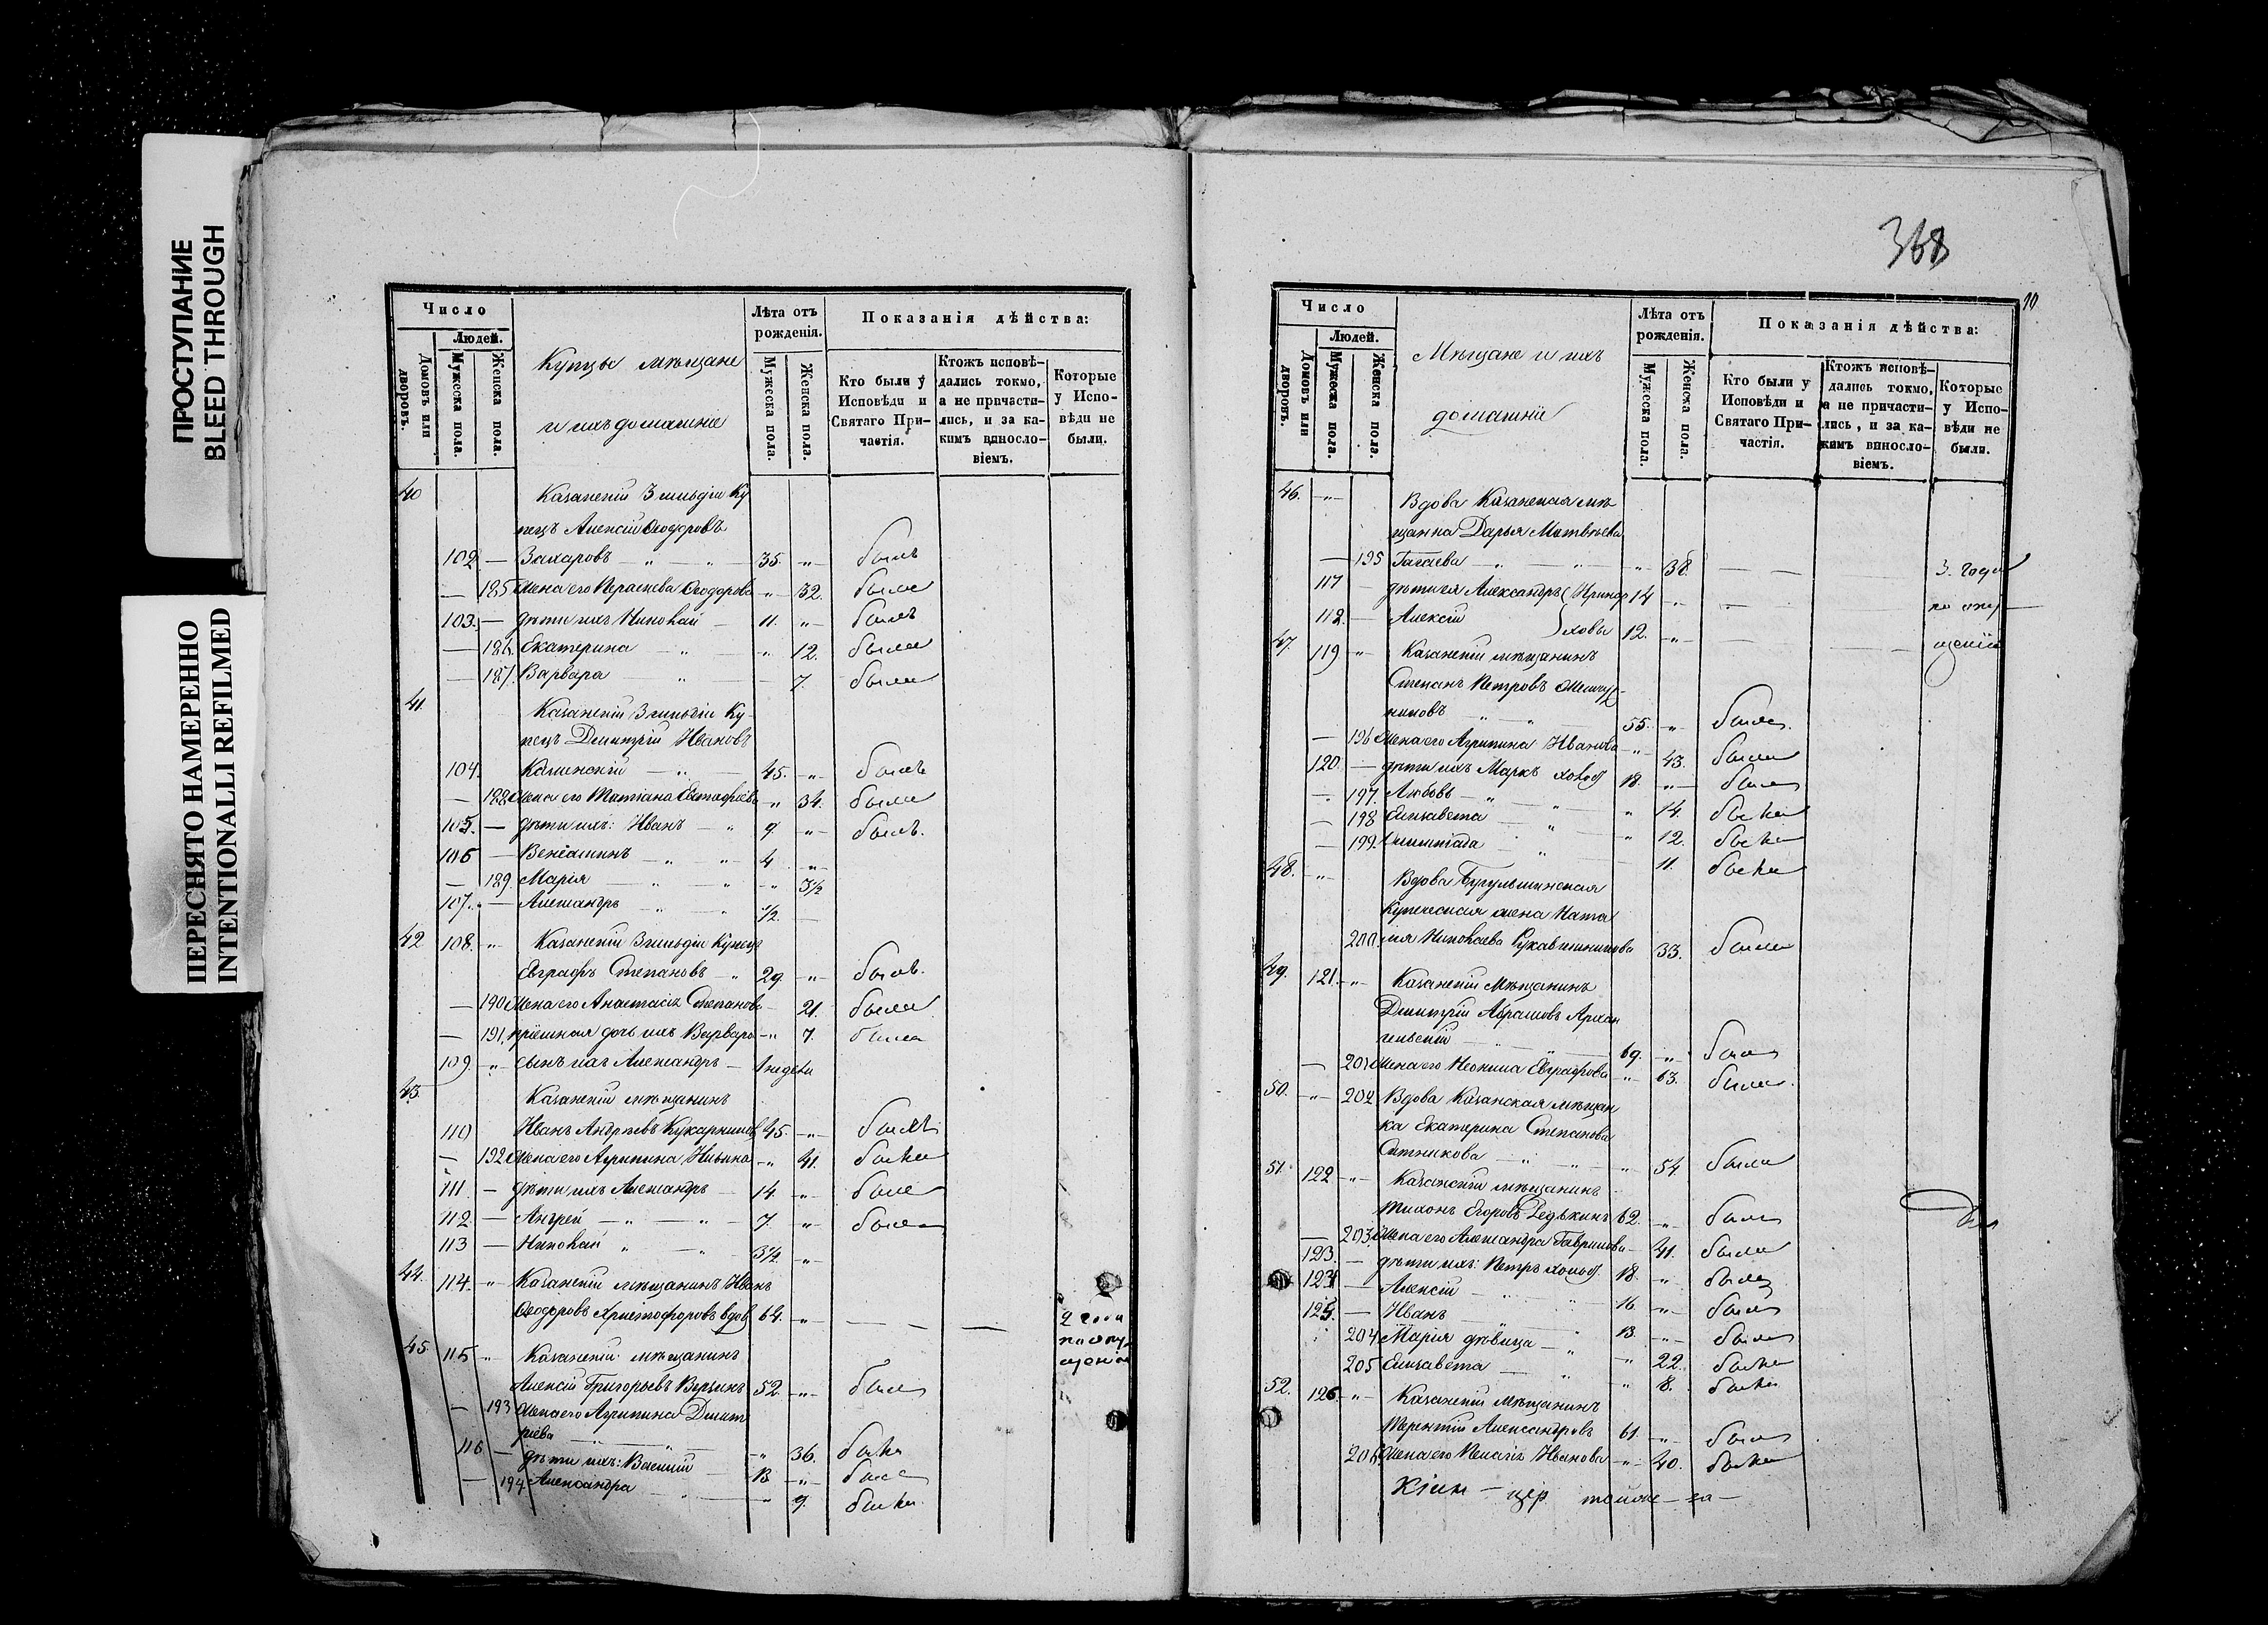 ПРОСТУПАНИЕ
BLEED THROUGH
ПЕРЕСНЯТО НАМЕРЕННО
INTENTIONALLI REFILMED
Число
Людей.
Домовъ или дворовъ.
Мужеска пола.
Женска пола.
Купцы мѣщане
и ихъ домашніе
Лѣта отъ рожденія.
Мужеска пола.
Женска пола.
Показанія дѣйства:
Кто были у Исповѣди и Святаго Причастія.
Ктожъ исповѣдались токмо, а не причастились, и за какимъ винословіемъ.
Которые у Исповѣди не были.
40 Казанскій 3 гильдіи Ку
пецъ Алексій Ѳеодоровъ
102 — Захаровъ — „ — „ 35. „ былъ
— 185 жена его Параскева Ѳеодорова „ 32. была
103. — дѣти ихъ Николай — 11. „ былъ
— 186. Екатерина — „ „ 12. была
— 187. Варвара „ — 7. была
41. Казанскій 3 гильдіи Ку-
пецъ Дмитрій Ивановъ
104. Каминскій — „ 45. „ былъ
— 188 жена его Татіана Евстафіева „ 34. была
105. — дѣти ихъ: Иванъ — „ 9. „ былъ.
106 — Веніаминъ — „ „ 4 „
— 189. Марія — „ „ „ 3½
107. — Александръ „ „ ½. —
42 108. „ Казанскій 3 гильдіи Купецъ
Евграфъ Степановъ — „ 29. „ былъ.
— 190 жена его Анастасія Степанова — 21. была
— 191. пріемная дочь ихъ Варвара — „ 7. была
109. „ сынъ ихъ Александръ — 1 недѣли
43. Казанскій мѣщанинъ
110 Иванъ Андреевъ Кукарниковъ 45. „ былъ
— 192 жена его Агрипина Ильина — „ 41. была
111. — дѣти ихъ Александръ — 14. „ былъ
112. — Андрей — „ — „ 7. „ былъ
113 — Николай „ „ 3½. „
44. 114. „ Казанскій мѣщанинъ Иванъ
Ѳеодоровъ Христофоровъ вдов 64. „ — — — 2 года
по опу
щенію
45 115 „ Казанскій мѣщанинъ
Алексій Григорьевъ 52. „ былъ
— 193 жена его Агрипина Дмит
ріева „ 36. была
116 — дѣти ихъ: Василій 13 „ былъ
— 194 Александра „ — 9. была
368
10
Число
Людей.
Домовъ или дворовъ.
Мужеска пола.
Женска пола.
Мѣщане и ихъ
домашніе
Лѣта отъ рожденія.
Мужеска пола.
Женска пола.
Показанія дѣйства:
Кто были у Исповѣди и Святаго Причастія.
Ктожъ исповѣдались токмо, а не причастились, и за какимъ винословіемъ.
Которые у Исповѣди не были.
46. „ Вдова Казанская мѣ
щанка Дарья Матвѣева
— 195 — „ „ „ 38. — — — 3. года
117 — дѣти ея Александръ 14 „ — по опу
112. — Алексій холы 12. „ — — щенію
47. 119 „ Казанскій мѣщанинъ
Степанъ Петровъ
никовъ „ „ 55. „ былъ
— 196 жена его Агрипина Иванова „ 43. была
120 — дѣти ихъ Маркъ холос 18. „ былъ
— 197. Любовь — „ „ „ 14. была
— 198 Елизавета — „ „ 12. была
— 199. Олимпіада — „ 11. была
48. „ Вдова Бугульминская
Купеческая жена Ната
200. лія Николаева Рукавишникова 33. была
49. 121. „ Казанскій Мѣщанинъ
Дмитрій Абрамовъ Архан
гельскій 69. „ былъ
— 201 жена его Неонила Евграфова — „ 63. была
50. „ 202 Вдова Казанская мѣщан
ка Екатерина Степанова
Ситникова — „ „ „ 54. была
51. 122 „ Казанскій мѣщанинъ
Тихонъ Егоровъ Редькинъ 62. „ былъ
— 203. жена его Александра Гаврилова — 41. была
123. — дѣти ихъ: Петръ холос. 18. „ былъ
124 — Алексій 16 „ былъ
125. — Иванъ „ 13. „ былъ
204 Марія дѣвица — „ „ 22. была
205 Елизавета „ „ 8. была
52. 126 „ Казанскій мѣщанинъ
Терентій Александровъ 61. „ былъ
206 жена его Пелагія Иванова — „ 40. была